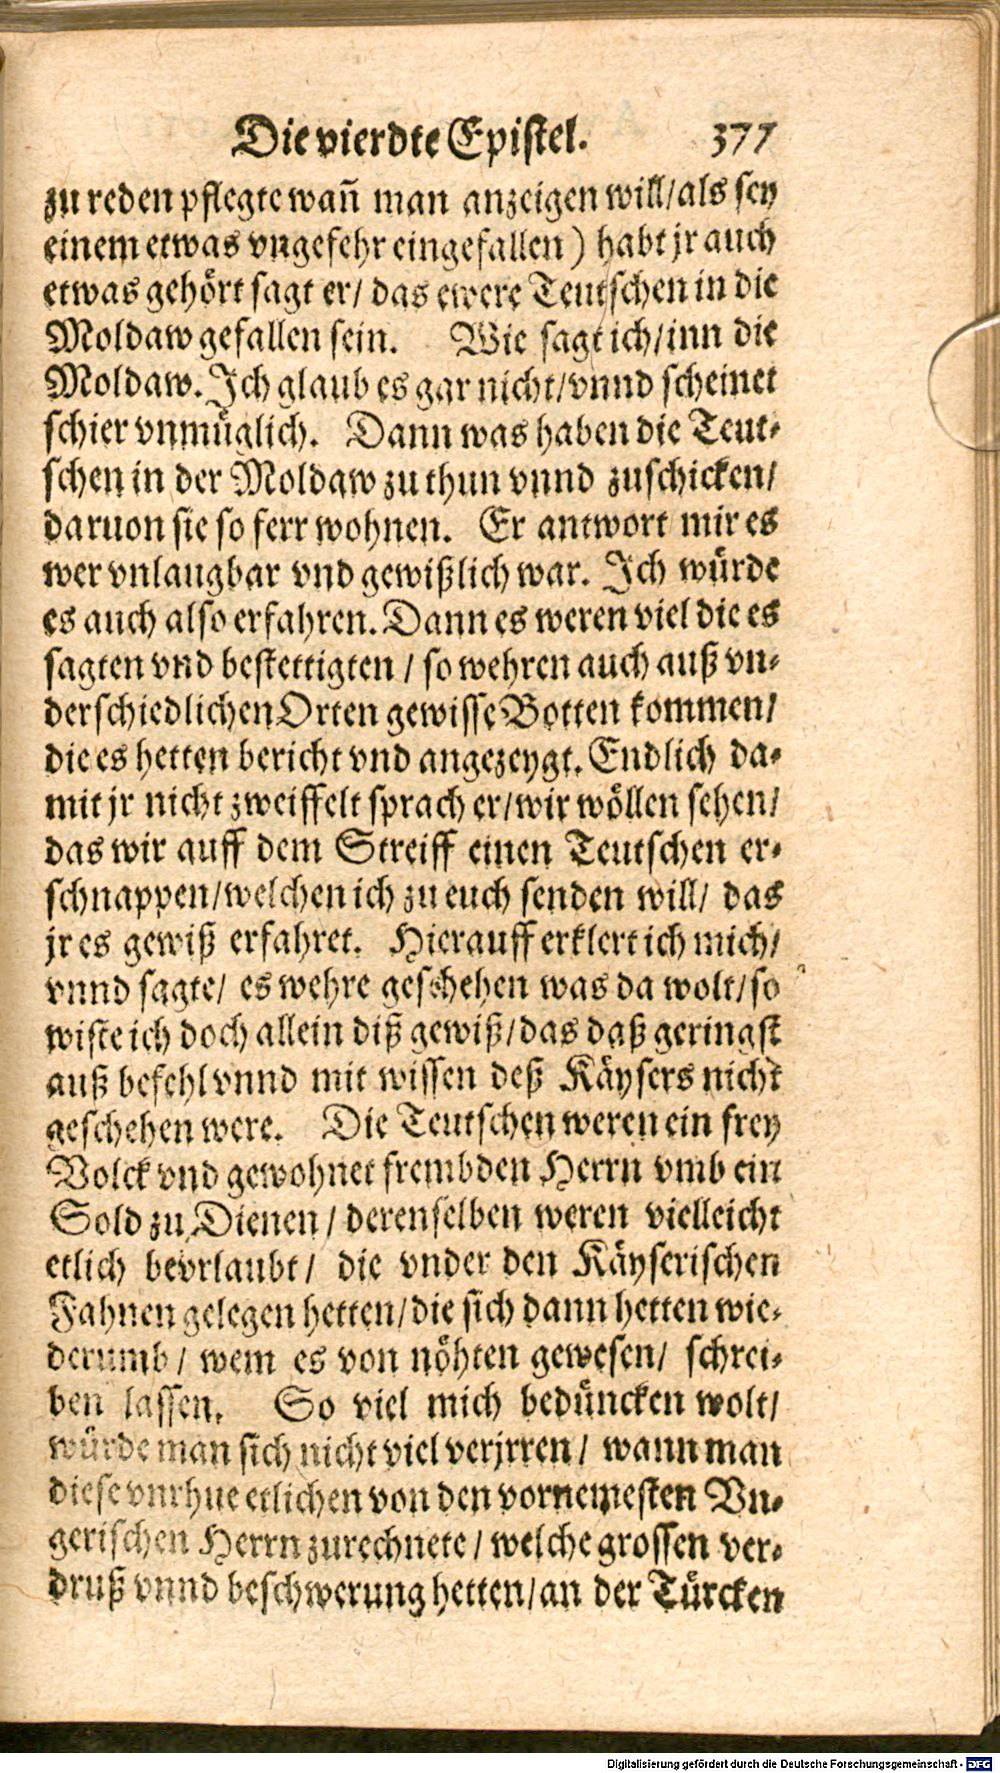 Die vierdte Epistel. 377
zu reden pflegte wañ man anzeigen will/als sey
einem etwas vngefehr eingefallen) habt jr auch
etwas gehört sagt er/ das ewere Teutschen in die
Moldaw gefallen sein. Wie sagt ich/inn die
Moldaw. Ich glaub es gar nicht/vnnd scheinet
schier vnmüglich. Dann was haben die Teut-
schen in der Moldaw zu thun vnnd zuschicken/
daruon sie so ferr wohnen. Er antwort mir es
wer vnlaugbar vnd gewißlich war. Ich würde
es auch also erfahren. Dann es weren viel die es
sagten vnd bestettigten / so wehren auch auß vn-
derschiedlichen Orten gewisse Botten kommen/
die es hetten bericht vnd angezeygt. Endlich da-
mit jr nicht zweiffelt sprach er/wir wöllen sehen/
das wir auff dem Streiff einen Teutschen er-
schnappen/welchen ich zu euch senden will/ das
jr es gewiß erfahret. Hierauff erklert ich mich/
vnnd sagte/ es wehre geschehen was da wolt/so
wiste ich doch allein diß gewiß/das daß geringst
auß befehl vnnd mit wissen deß Käysers nicht
geschehen were. Die Teutschen weren ein frey
Volck vnd gewohnet frembden Herrn vmb ein
Sold zu Dienen / derenselben weren vielleicht
etlich bevrlaubt/ die vnder den Käyserischen
Fahnen gelegen hetten/die sich dann hetten wie-
derumb / wem es von nöhten gewesen/ schrei-
ben lassen. So viel mich bedüncken wolt/
würde man sich nicht viel verjrren / wann man
diese vnrhue etlichen von den vornemesten Vn-
gerischen Herrn zurechnete / welche grossen ver-
druß vnnd beschwerung hetten/an der Türcken
Digitalisierung gefördert durch die Deutsche Forschungsgemeinschaft - DFG